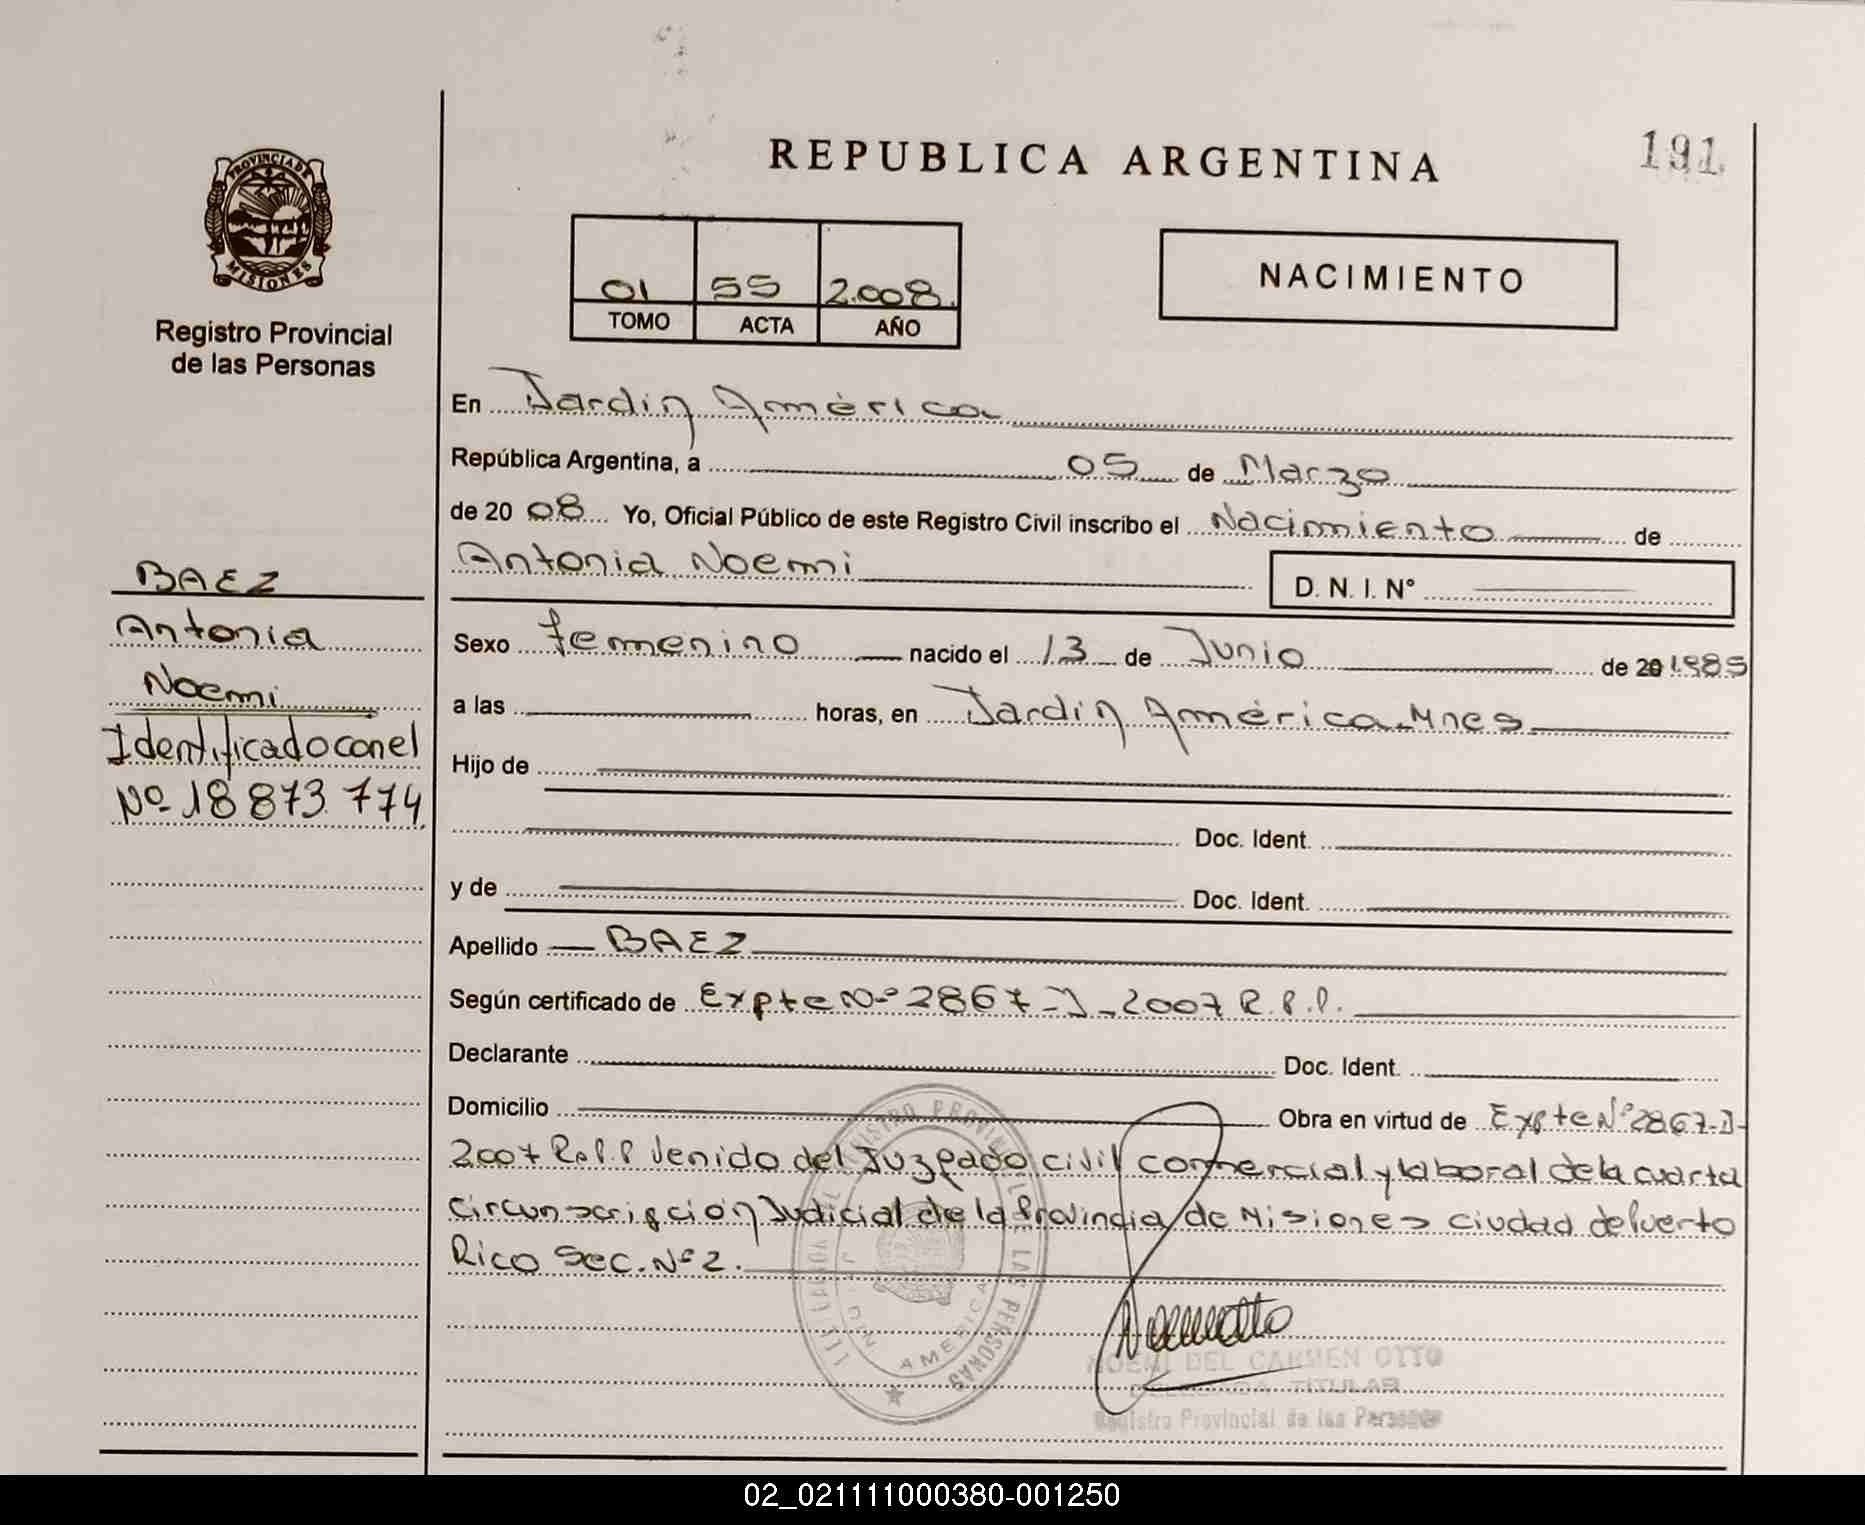 REPUBLICA ARGENTINA
191
PROVINCIA DE
MISIONES
Registro Provincial
de las Personas
01 55 2.008.
TOMO ACTA AÑO
NACIMIENTO
En Jardin América
República Argentina, a 05 de Marzo
de 20 08 Yo, Oficial Público de este Registro Civil inscribo el Nacimiento de
Antonia Noemi D. N. I. Nº
BAEZ
Antonia
Noemi
Identificado con el
Nº 18 873 774
Sexo femenino nacido el 13 de Junio de 20 1.985
a las horas, en Jardin América - Mnes
Hijo de
Doc. Ident.
y de Doc. Ident.
Apellido BAEZ
Según certificado de Expte Nº 2867-J-2007 R.P.P.
Declarante Doc. Ident.
Domicilio Obra en virtud de Expte Nº 2867-J-
2007 R.P.P Venido del Juzgado civil comercial y laboral de la cuarta
circunscripción Judicial de la Provincia de Misiones ciudad de Puerto
Rico Sec. Nº 2.
REGISTRO PROVINCIAL DE LAS PERSONAS
JARDIN AMERICA
NOEMI DEL CARMEN OTTO
DELEGADA TITULAR
Registro Provincial de las Personas
02_021111000380-001250